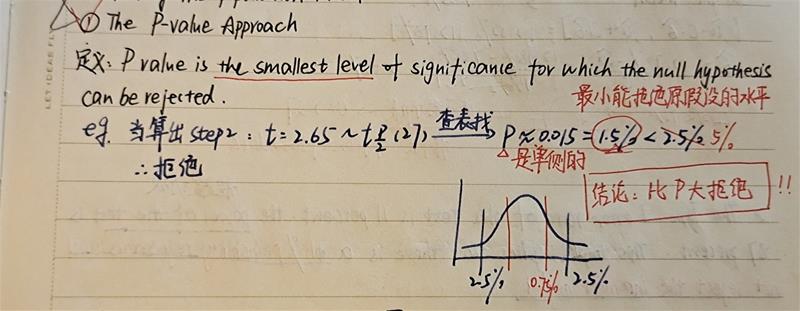 ① The P-value Approach
定义: P value is the smallest level of significance for which the null hypothesis
can be rejected.
最小能拒绝原假设的水平
eg. 当算出step2: t=2.65 ~ t p/2 (27) 查表找 P≈0.015=1.5%<2.5% 5%
△是单侧的
∴拒绝
结论: 比P大拒绝 !!
2.5% 0.75% 2.5%
LET·IDEAS FL